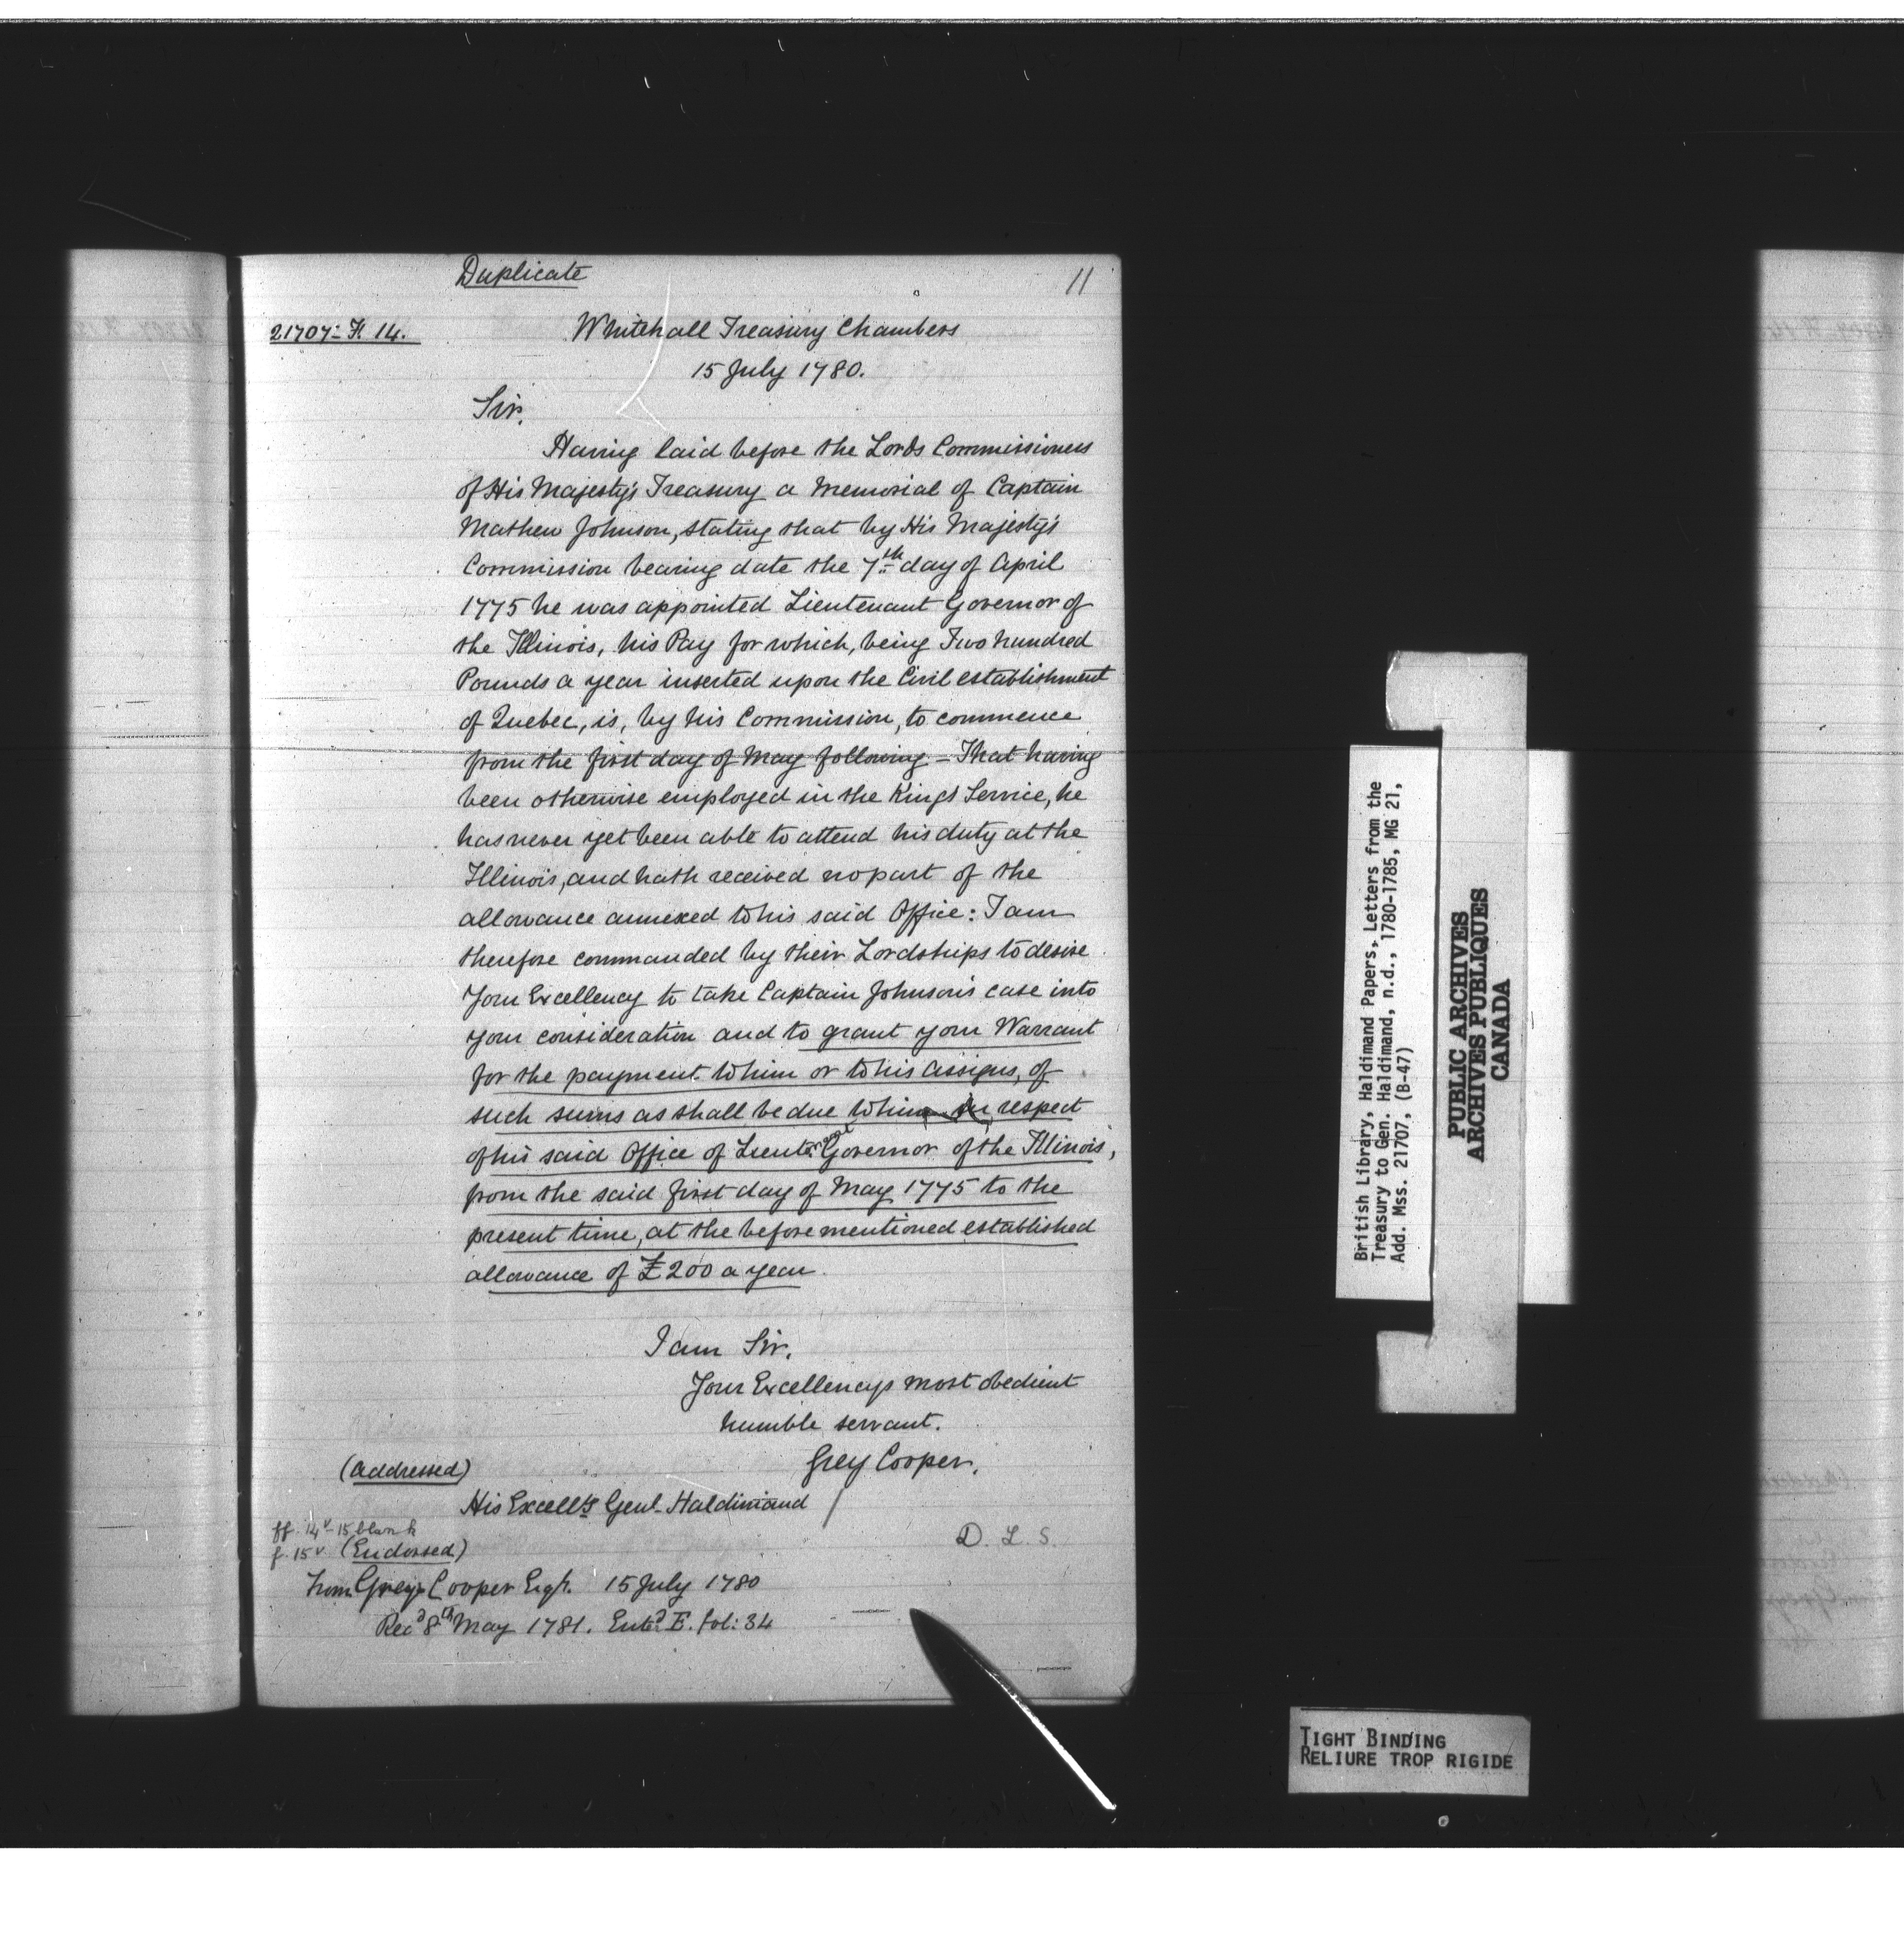 Duplicate
11
21707- F. 14.
Whitehall Treasury Chambers
15 July 1780.
Sir,
Having laid before the Lords Commissioners
of His Majesty's Treasury a Memorial of Captain
Mathew Johnson, stating that by His Majesty's
Commission bearing date the 7th day of April
1775 he was appointed Lieutenant Governor of
the Illinois, his Pay for which, being Two hundred
Pounds a year inserted upon the Civil establishment
of Quebec, is, by his Commission, to commence
from the first day of May following - That having
been otherwise employed in the King's Service, he
has never yet been able to attend his duty at the
Illinois, and hath received no part of the
allowance annexed to his said Office: I am
therefore commanded by their Lordships to desire
Your Excellency to take Captain Johnson's case into
your consideration and to grant your Warrant
for the payment to him or to his assigns, of
such sums as shall be due to him in respect
of his said Office of Lieutenant Governor of the Illinois,
from the said first day of May 1775 to the
present time, at the before mentioned established
allowance of £200 a year.
I am Sir,
Your Excellencys most obedient
humble servant.
Grey Cooper.
(Addressed)
His Excelly Genl. Haldimand
ff. 14v-15 blank
f. 15v (Endorsed)
D. L. S.
From Grey Cooper Esqr. 15 July 1780
Recd 8th May 1781. Entd E. fol: 34
British Library, Haldimand Papers, Letters from the
Treasury to Gen. Haldimand, n.d., 1780-1785, MG 21,
Add. Mss. 21707, (B-47)
PUBLIC ARCHIVES
ARCHIVES PUBLIQUES
CANADA
TIGHT BINDING
RELIURE TROP RIGIDE